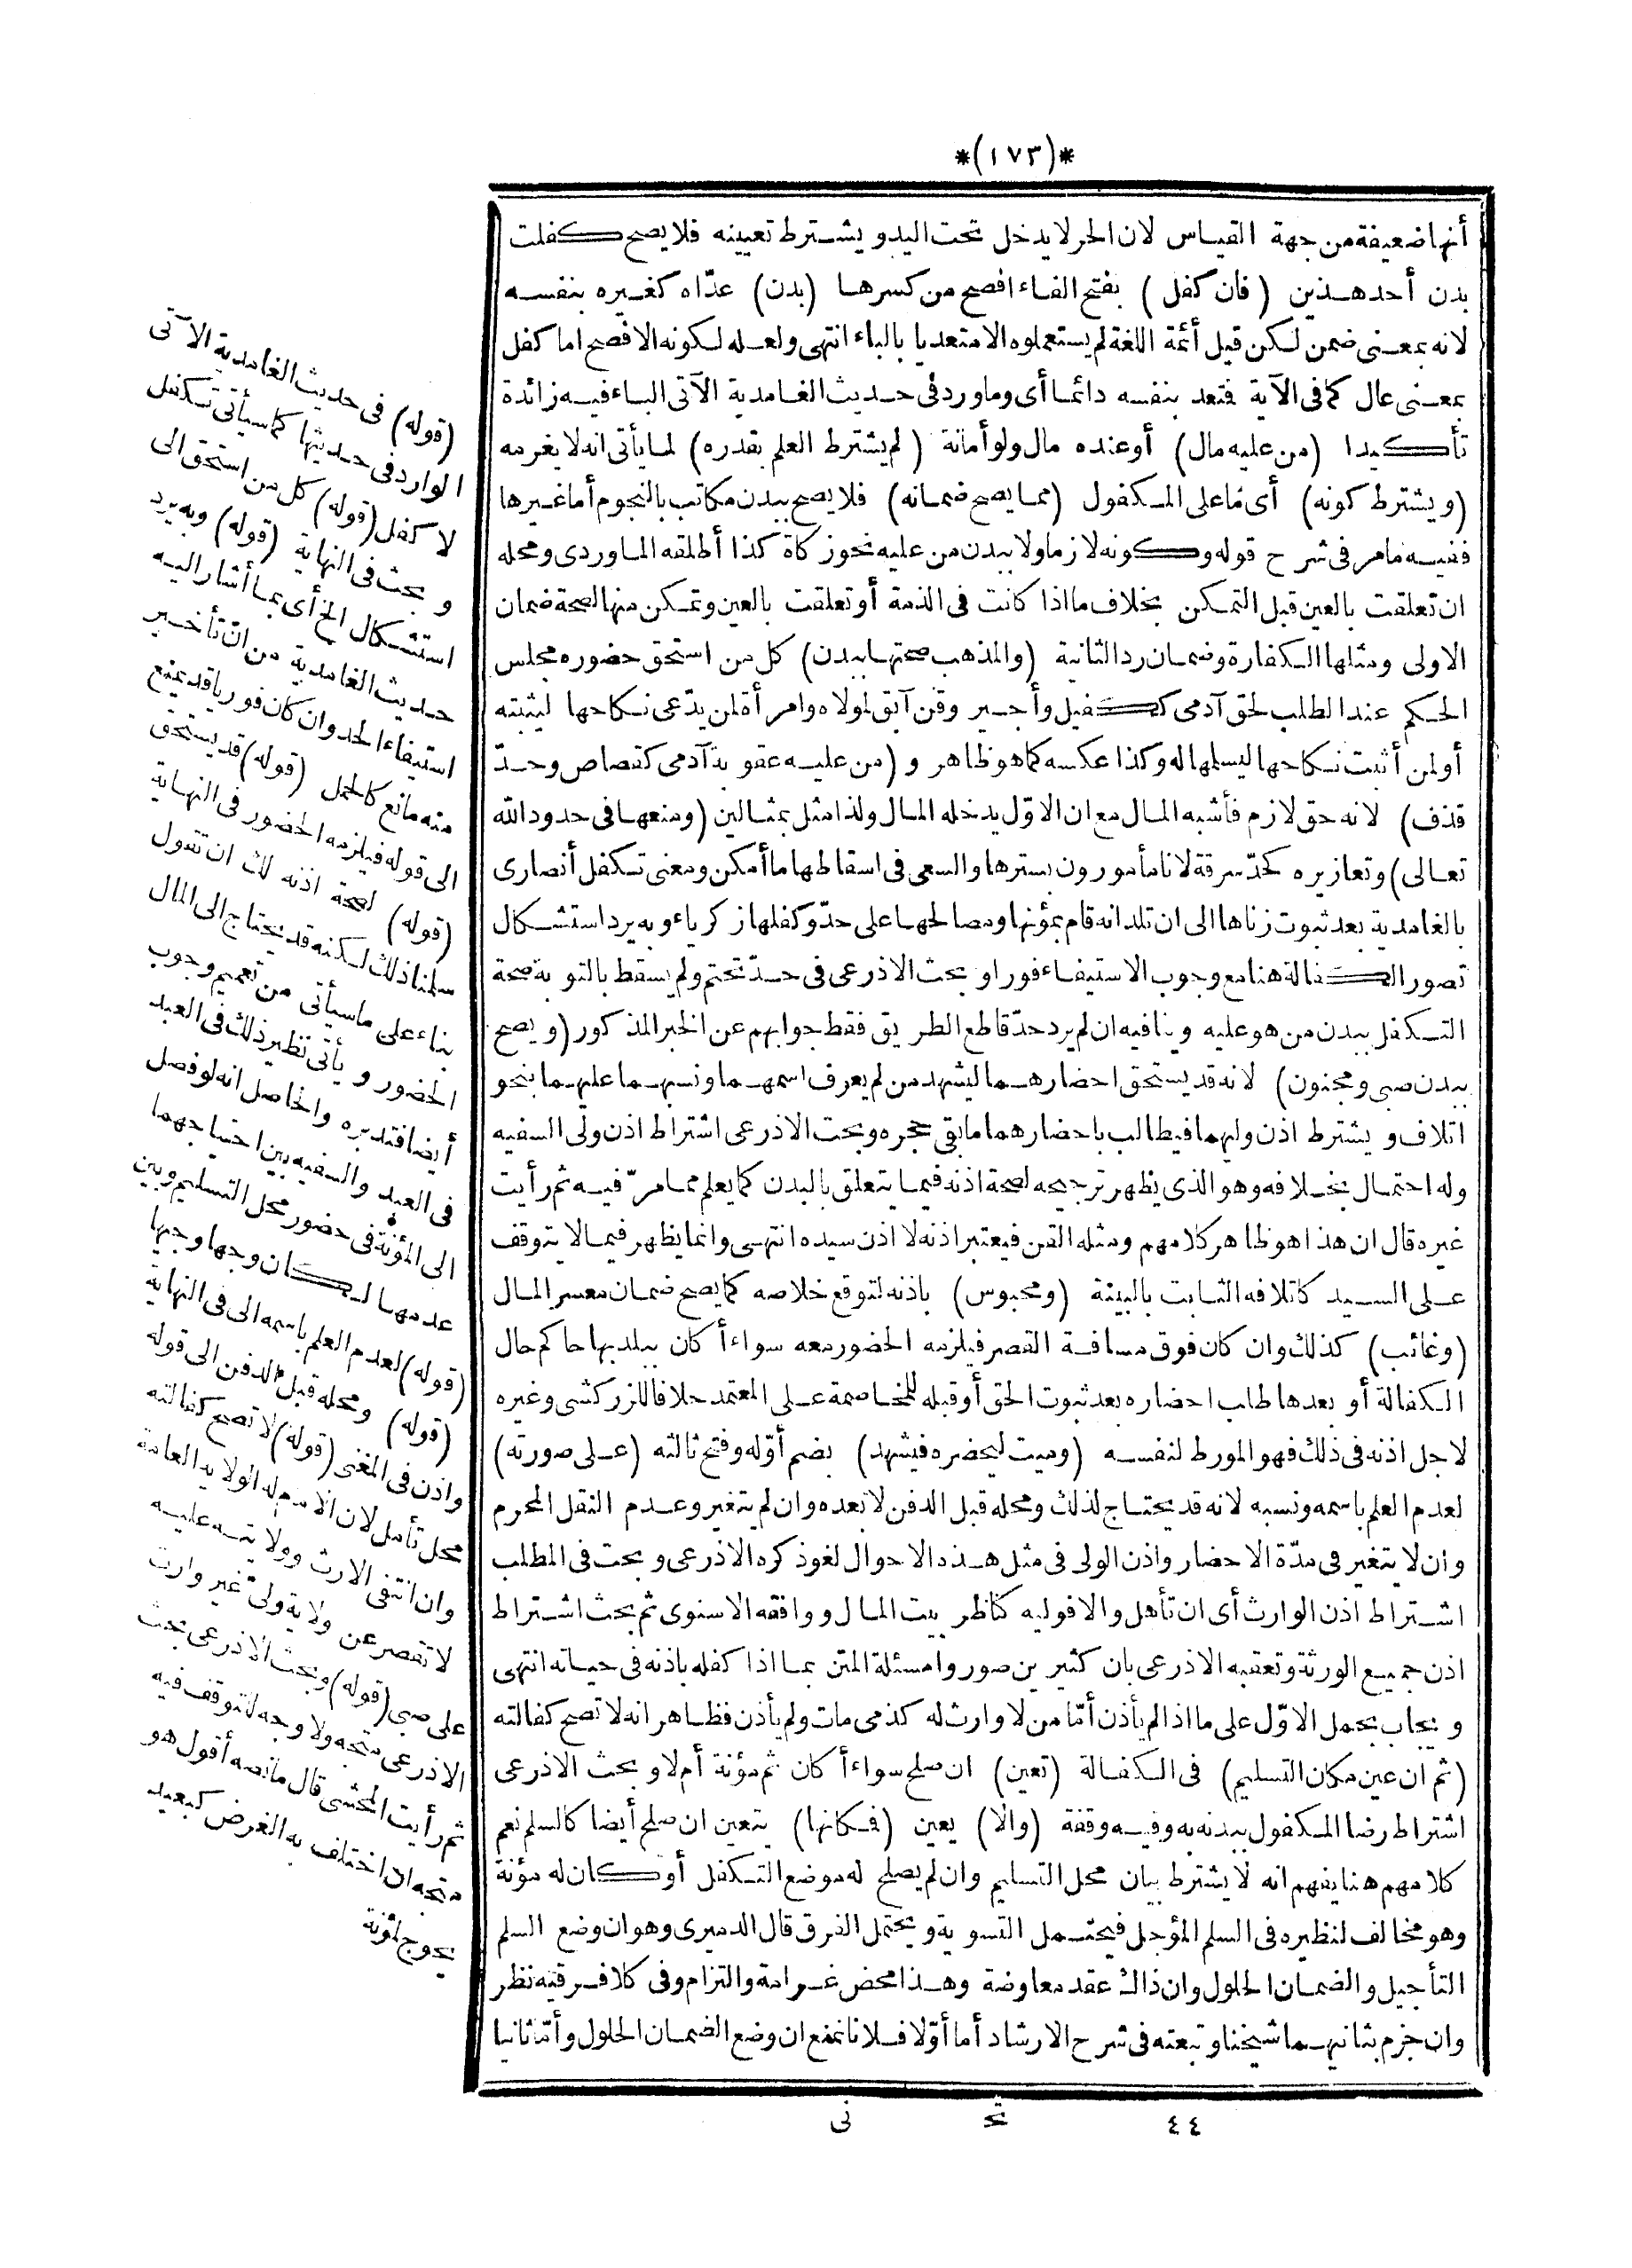 *(١٧٣)*
أنها ضعيفة من جهة القياس لان الحر لا يدخل تحت اليد ويشترط تعيينه فلا يصح كفلت
بدن أحد هذين (فان كفل) بفتح الفاء افصح من كسرها (بدن) عدّاه كغيره بنفسه
لانه بمعنى ضمن لكن قيل أئمة اللغة لم يستعملوه الا متعديا بالباء انتهى ولعله لكونه الافصح اما كفل
بمعنى عال كما فى الآية فتعد بنفسه دائما أى وما ورد فى حديث الغامدية الآتى الباء فيه زائدة
تأكيدا (من عليه مال) أو عنده مال ولو أمانة (لم يشترط العلم بقدره) لما يأتى انه لا يغرمه
(ويشترط كونه) أى ما على المكفول (مما يصح ضمانه) فلا يصح ببدن مكاتب بالنجوم أما غيرها
ففيه ما مر فى شرح قوله وكونه لازما ولا ببدن من عليه نحو زكاة كذا أطلقه الماوردى ومحله
ان تعلقت بالعين قبل التمكن بخلاف ما اذا كانت فى الذمة أو تعلقت بالعين وتمكن منها لصحة ضمان
الاولى ومثلها الكفارة وضمان رد الثانية (والمذهب صحتها ببدن) كل من استحق حضوره مجلس
الحكم عند الطلب لحق آدمى ككفيل وأجير وقن آبق لمولاه وامرأة لمن يدّعى نكاحها ليثبته
أو لمن أثبت نكاحها ليسلمها له وكذا عكسه كما هو ظاهر و (من عليه عقوبة آدمى كقصاص وحدّ
قذف) لانه حق لازم فأشبه المال مع ان الاوّل يدخله المال ولذا مثل بمثالين (ومنعها فى حدود الله
تعالى) وتعازيره كحدّ سرقة لانا مأمورون بسترها والسعى فى اسقاطها ما أمكن ومعنى تكفل أنصارى
بالغامدية بعد ثبوت زناها الى ان تلد انه قام بمؤنها ومصالحها على حدّ وكفلها زكرياء وبه يرد استشكال
تصور الكفالة هنا مع وجوب الاستيفاء فورا وبحث الاذرعى فى حدّ تحتم ولم يسقط بالتوبة صحة
التكفل ببدن من هو عليه وينافيه ان لم يرد حدّ قاطع الطريق فقط جوابهم عن الخبر المذكور (ويصح
ببدن صبى ومجنون) لانه قد يستحق احضارهما ليشهد من لم يعرف اسمهما ونسبهما عليهما بنحو
اتلاف ويشترط اذن وليهما فيطالب باحضارهما ما بقى حجره وبحث الاذرعى اشتراط اذن ولى السفيه
وله احتمال بخلافه وهو الذى يظهر ترجيحه لصحة اذنه فيما يتعلق بالبدن كما يعلم مما مرّ فيه ثم رأيت
غيره قال ان هذا هو ظاهر كلامهم ومثله القن فيعتبر اذنه لا اذن سيده انتهى وانما يظهر فيما لا يتوقف
على السيد كاتلافه الثابت بالبينة (ومحبوس) باذنه لتوقع خلاصه كما يصح ضمان معسر المال
(وغائب) كذلك وان كان فوق مسافة القصر فيلزمه الحضور معه سواءأ كان ببلد بها حاكم حال
الكفالة أو بعدها طلب احضاره بعد ثبوت الحق أو قبله للمخاصمة على المعتمد خلافا للزركشى وغيره
لاجل اذنه فى ذلك فهو المورط لنفسه (وميت ليحضره فيشهد) بضم أوّله وفتح ثالثه (على صورته)
لعدم العلم باسمه ونسبه لانه قد يحتاج لذلك ومحله قبل الدفن لا بعده وان لم يتغير وعدم النقل المحرم
وان لا يتغير فى مدّة الاحضار واذن الولى فى مثل هذه الاحوال لغو ذكره الاذرعى وبحث فى المطلب
اشتراط اذن الوارث أى ان تأهل والا فوليه كناظر بيت المال ووافقه الاسنوى ثم بحث اشتراط
اذن جميع الورثة وتعقبه الاذرعى بان كثيرين صوروا مسئلة المتن بما اذا كفله باذنه فى حياته انتهى
ويجاب بحمل الاوّل على ما اذا لم يأذن أمّا من لا وارث له كذمى مات ولم يأذن فظاهر انه لا تصح كفالته
(ثم ان عين مكان التسليم) فى الكفالة (تعين) ان صلح سواءأ كان ثم مؤنة أم لا وبحث الاذرعى
اشتراط رضا المكفول ببدنه به وفيه وقفة (والا) يعين (فمكانها) يتعين ان صلح أيضا كالسلم نعم
كلامهم هنا يفهم انه لا يشترط بيان محل التسليم وان لم يصلح له موضع التكفل أو كان له مؤنة
وهو مخالف لنظيره فى السلم المؤجل فيحتمل التسوية ويحتمل الفرق قال الدميرى وهو ان وضع السلم
التأجيل والضمان الحلول وان ذاك عقد معاوضة وهذا محض غرامة والتزام وفى كلا فرقيه نظر
وان جزم بثانيهما شيخنا وتبعته فى شرح الارشاد أما أوّلا فلانا نمنع ان وضع الضمان الحلول وأمّا ثانيا
(قوله) فى حديث الغامدية الآتى
الوارد فى حديثها كما سيأتى تكفل
لا كفل (قوله) كل من استحق الى
وبحث فى النهاية (قوله) وبه يرد
استشكال الخ أى بما أشار اليه
حديث الغامدية من انّ تأخير
استيفاء الحد وان كان فوريا قد يمنع
منه مانع كالحمل (قوله) قد يستحق
الى قوله فيلزمه الحضور فى النهاية
(قوله) لصحة اذنه لك ان تقول
سلمنا ذلك لكنه قد يحتاج الى المال
بناء على ما سيأتى من تعميم وجوب
الحضور ويأتى نظير ذلك فى العبد
أيضا فتدبره والحاصل انه لو فصل
فى العبد والسفيه بين احتياجهما
الى المؤنة فى حضور محل التسليم وبين
عدمها لكان وجها وجيها
(قوله) لعدم العلم باسمه الى فى النهاية
(قوله) ومحله قبل الدفن الى قوله
واذن فى المغنى (قوله) لا تصح كفالته
محل تأمل لان الامام له الولاية العامة
وان انتفى الارث وولايته عليه
لا تقصر عن ولاية ولىّ غير وارث
على صبى (قوله) وبحث الاذرعى بحث
الاذرعى متجه ولا وجه للتوقف فيه
ثم رأيت المحشى قال ما نصه أقول هو
متجه ان اختلف به الغرض كبعيد
يحوج لمؤنة
٤٤ تح نى